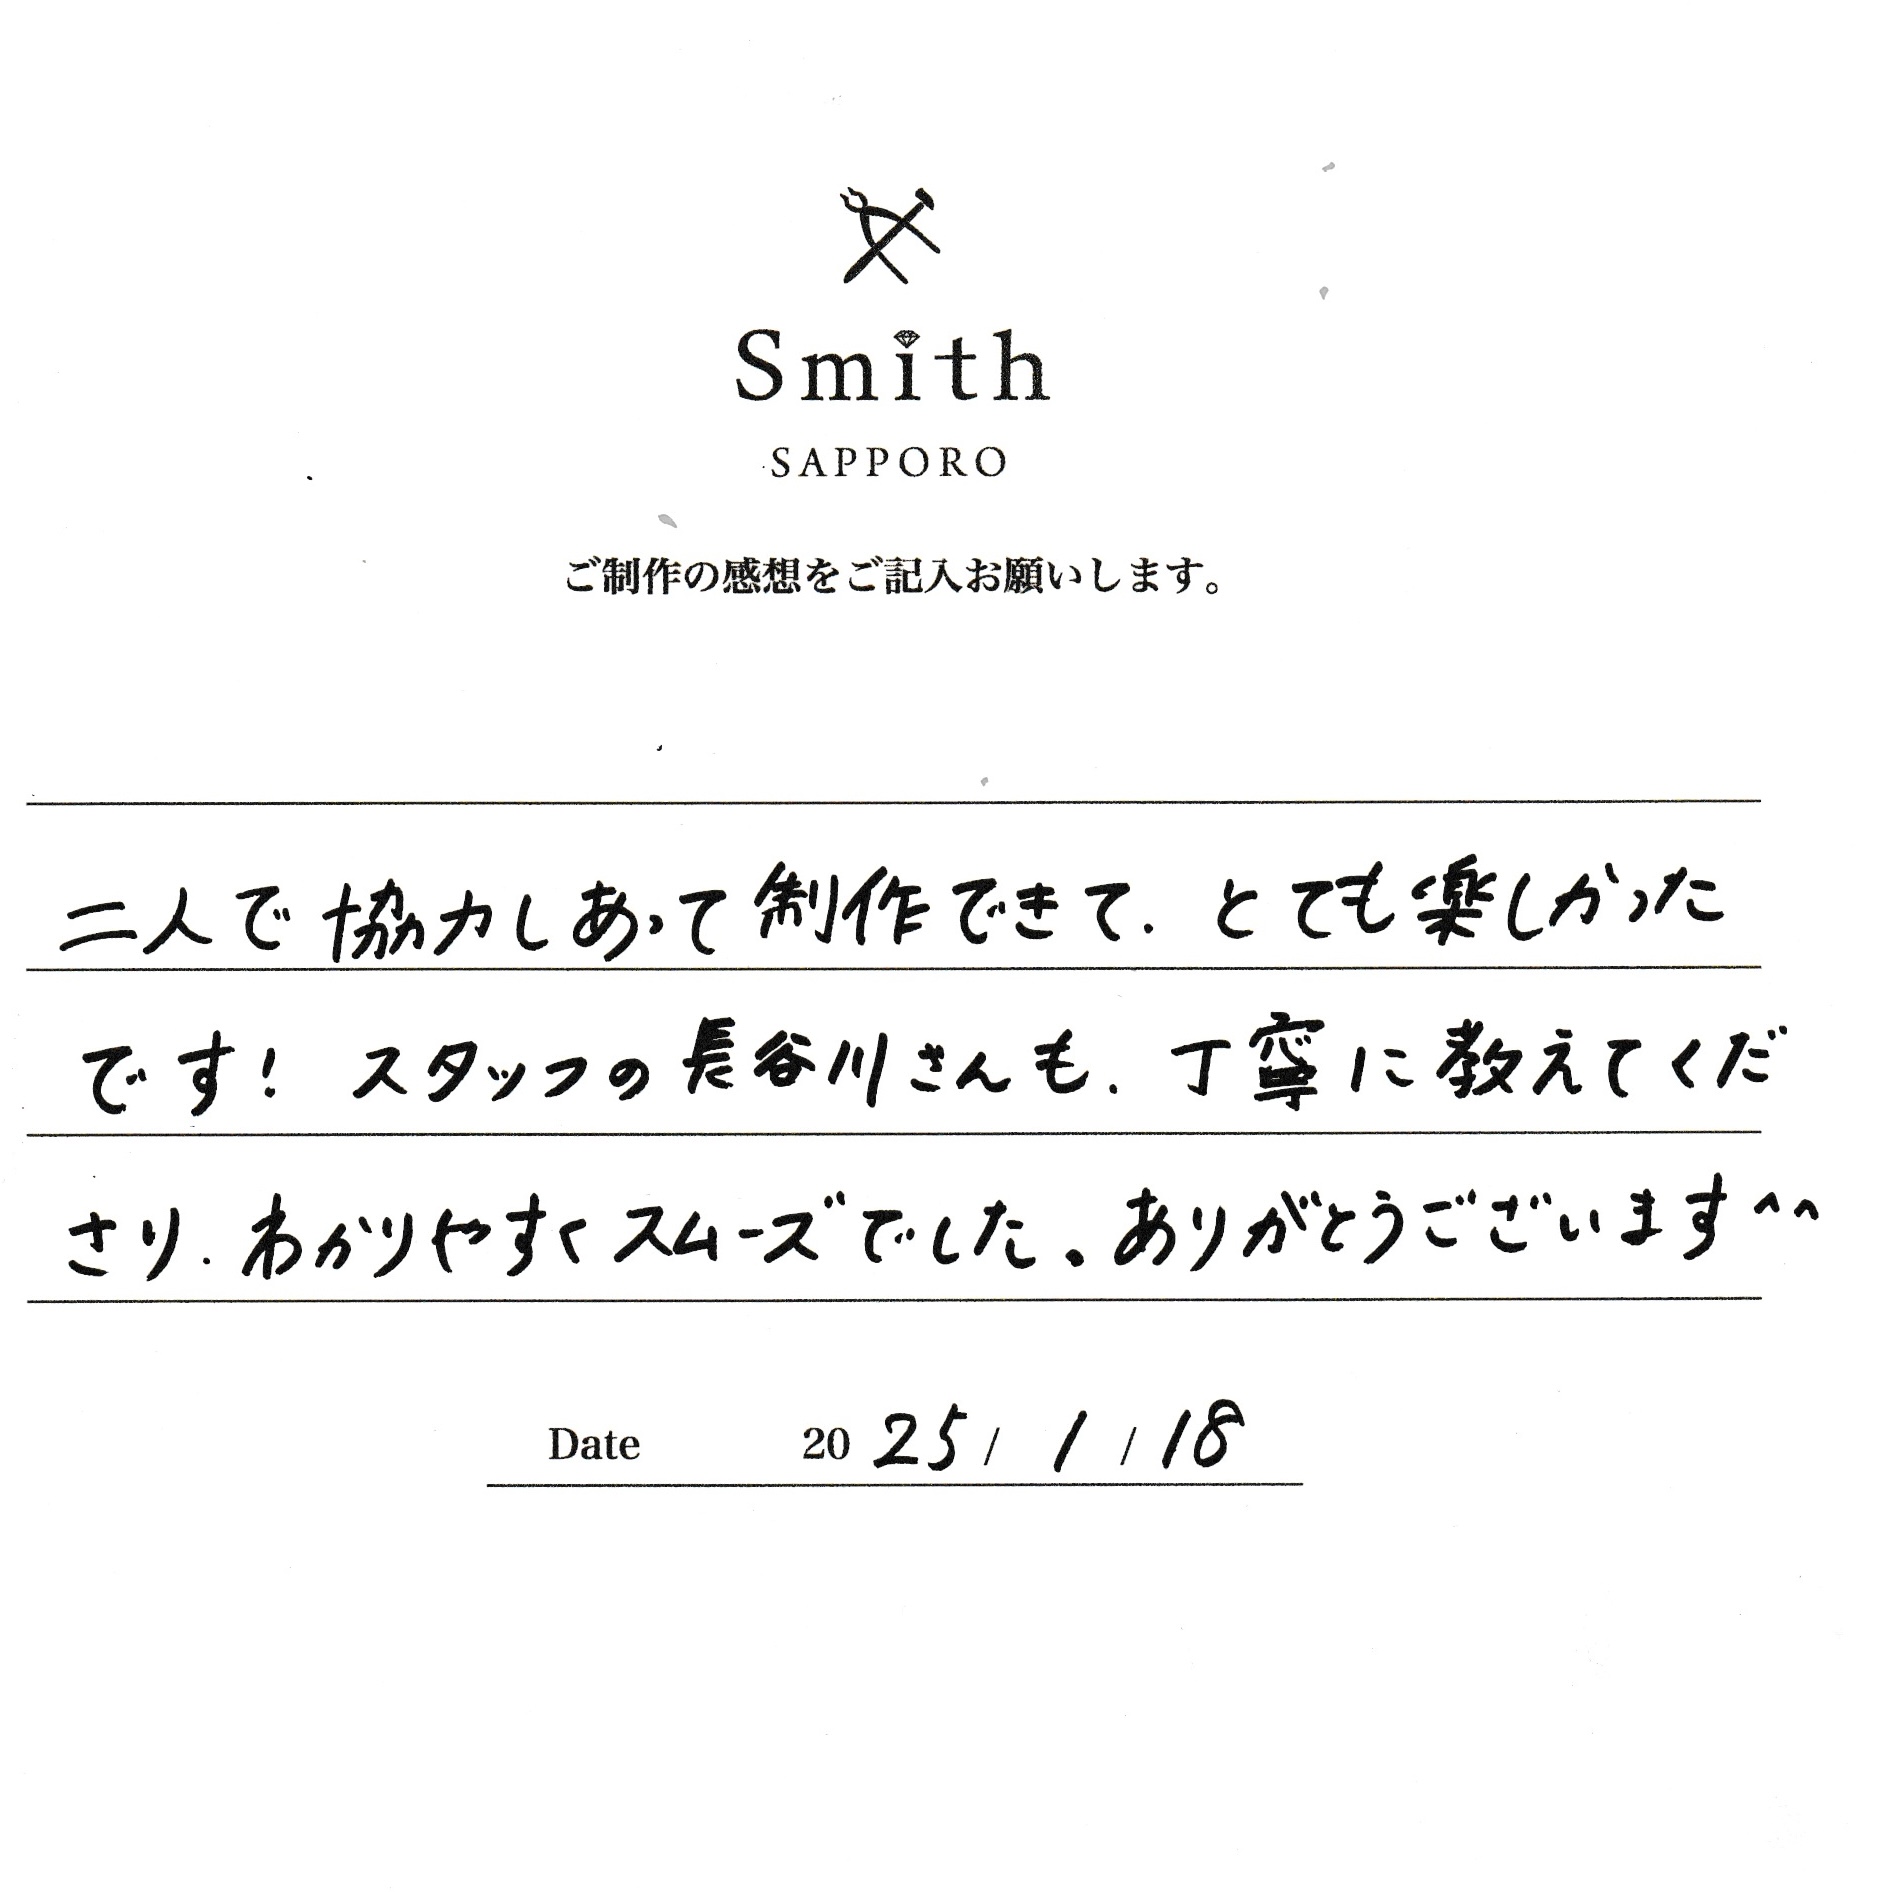 Smith
SAPPORO
ご制作の感想をご記入お願いします。
二人で協力しあって制作できて、とても楽しかった
です！ スタッフの長谷川さんも、丁寧に教えてくだ
さり、わかりやすくスムーズでした。ありがとうございます^^
Date 2025/1/18